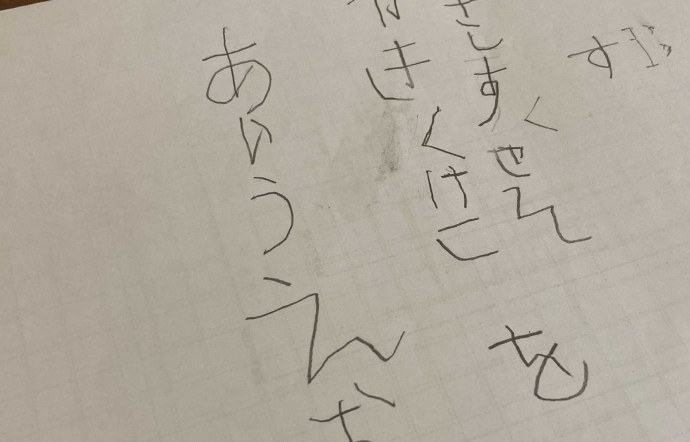 す
く
さしすせそ
を
かきくけこ
あいうえお